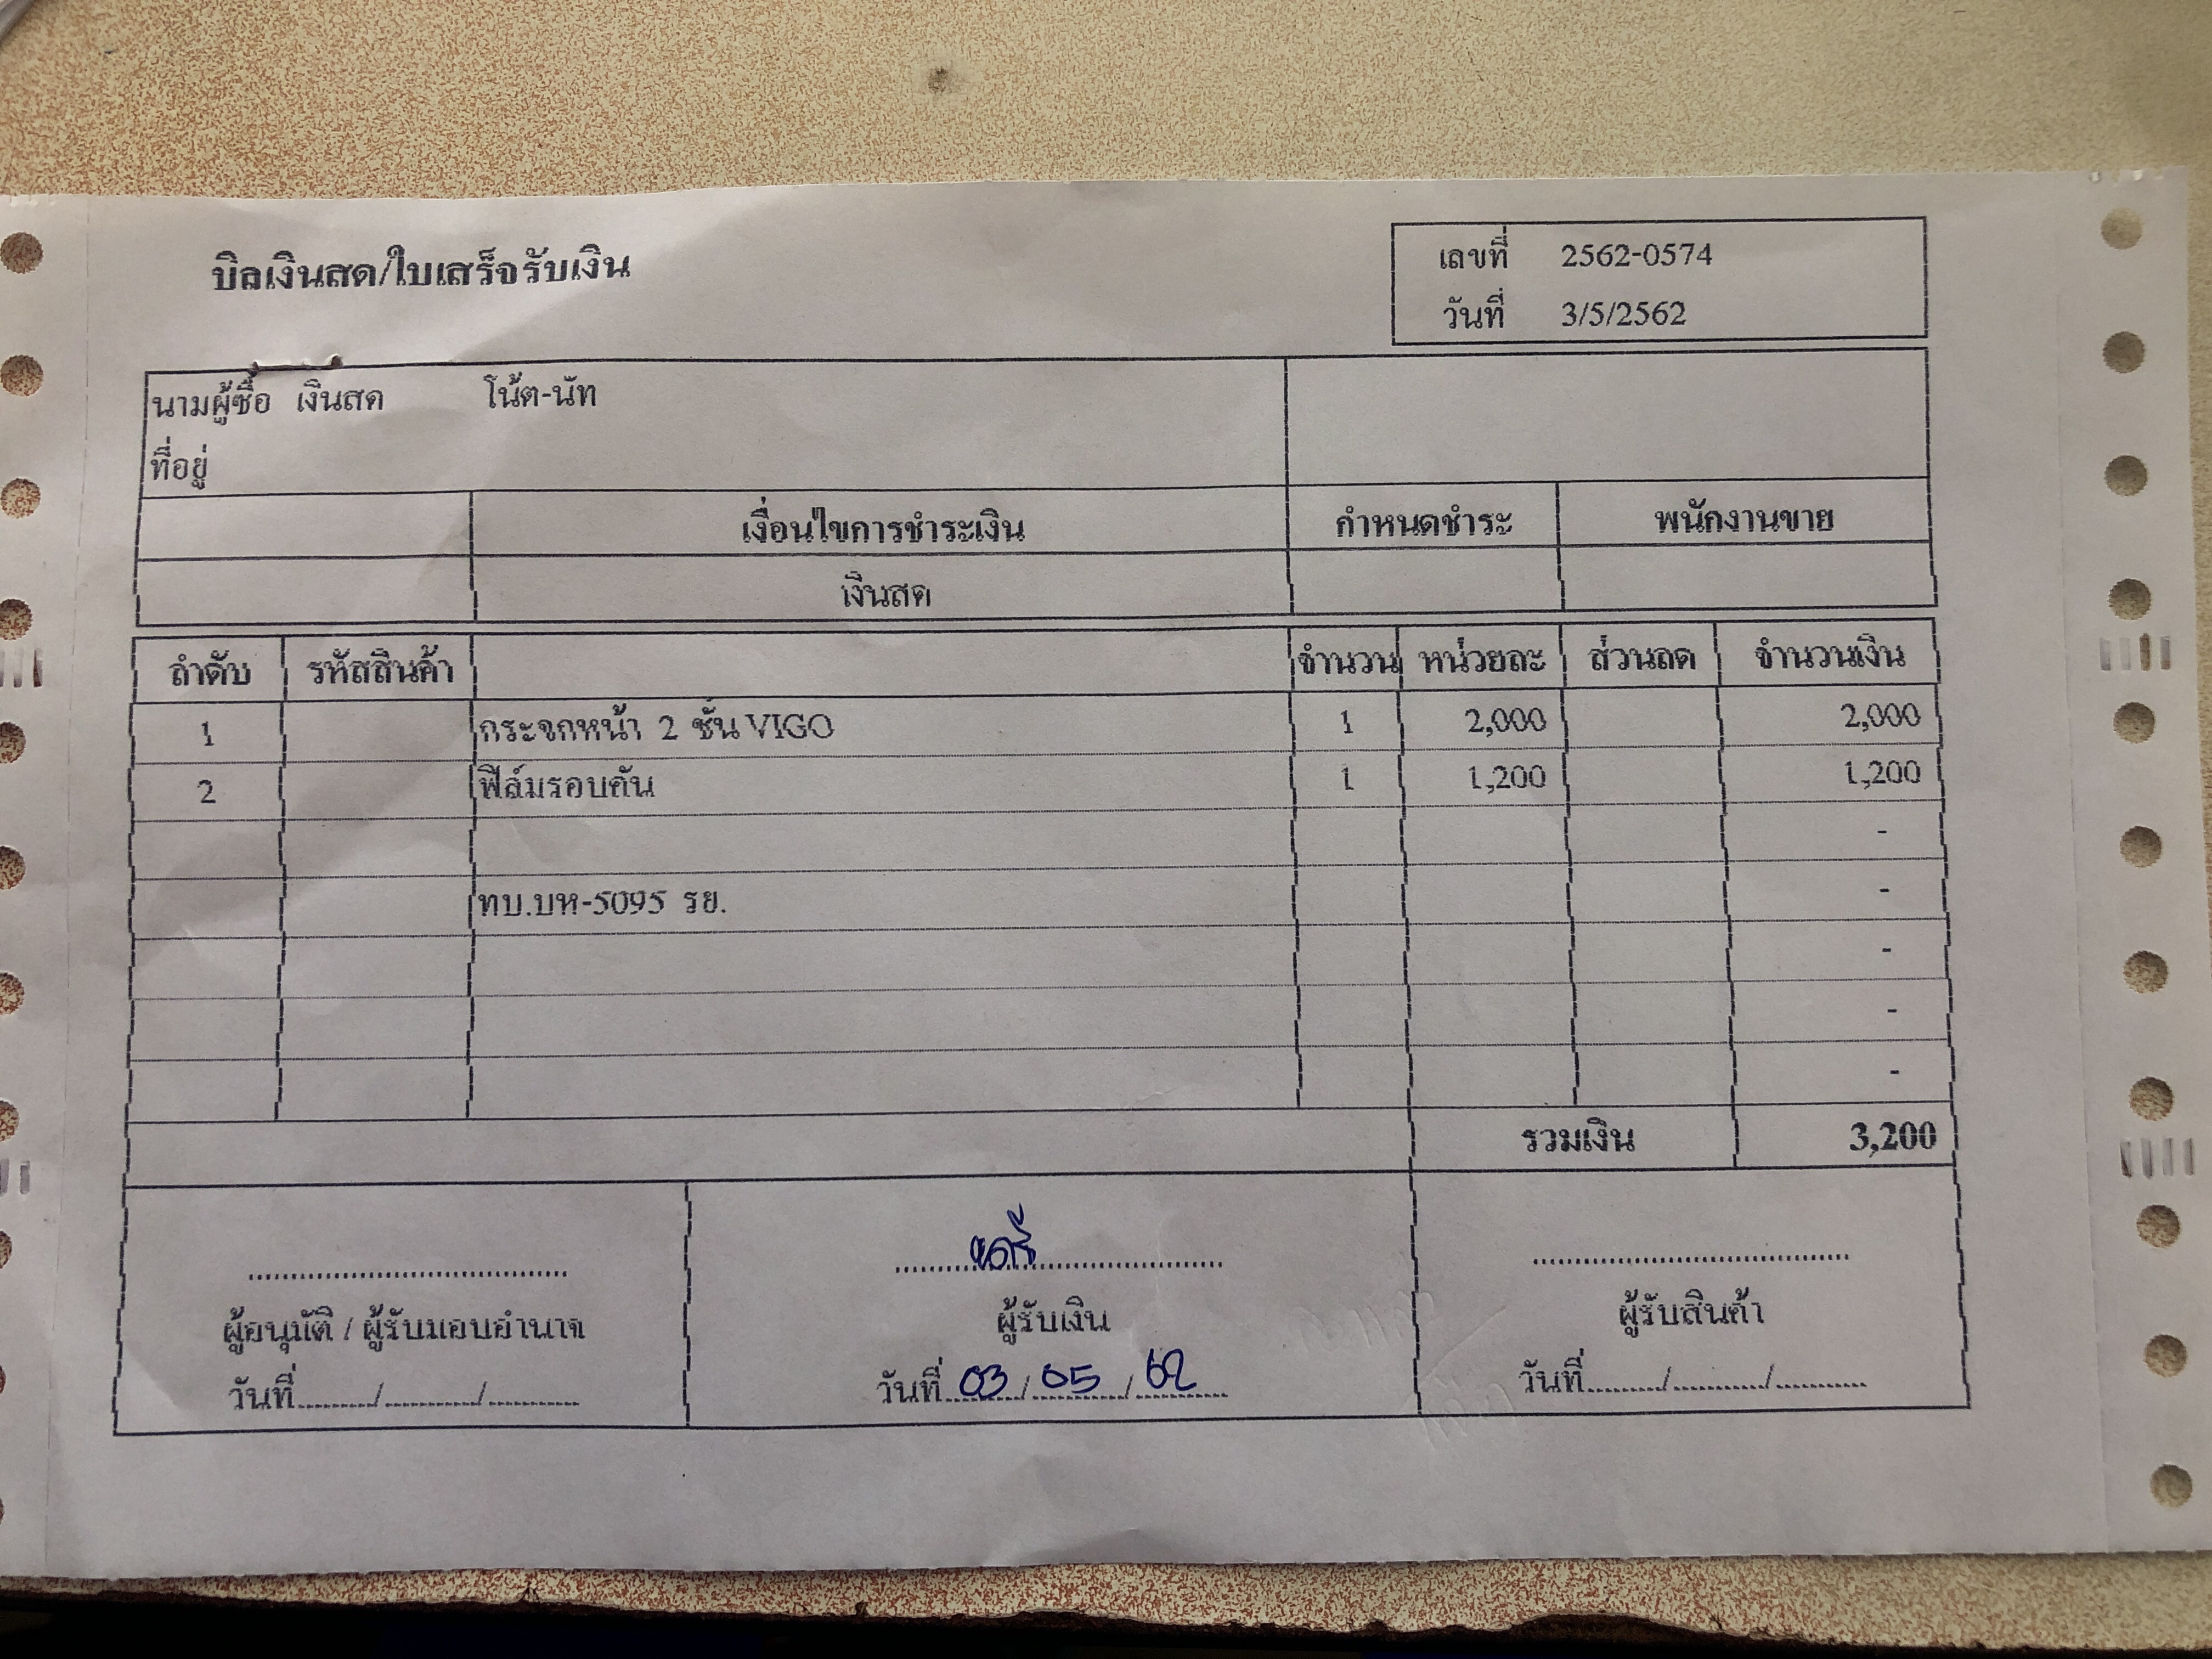 บิลเงินสด/ใบเสร็จรับเงิน
เลขที่ 2562-0574
วันที่ 3/5/2562
นามผู้ซื้อ เงินสด โน้ต-นัท
ที่อยู่
เงื่อนไขการชำระเงิน กำหนดชำระ พนักงานขาย
เงินสด
ลำดับ รหัสสินค้า จำนวน หน่วยละ ส่วนลด จำนวนเงิน
1 กระจกหน้า 2 ชั้น VIGO 1 2,000 2,000
2 ฟิล์มรอบคัน 1 1,200 1,200
-
ทบ.บห-5095 รย. -
-
-
-
รวมเงิน 3,200
ผู้อนุมัติ / ผู้รับมอบอำนาจ ผู้รับเงิน ผู้รับสินค้า
วันที่........./........../.......... วันที่ 03 / 05 / 62 วันที่........./........../..........